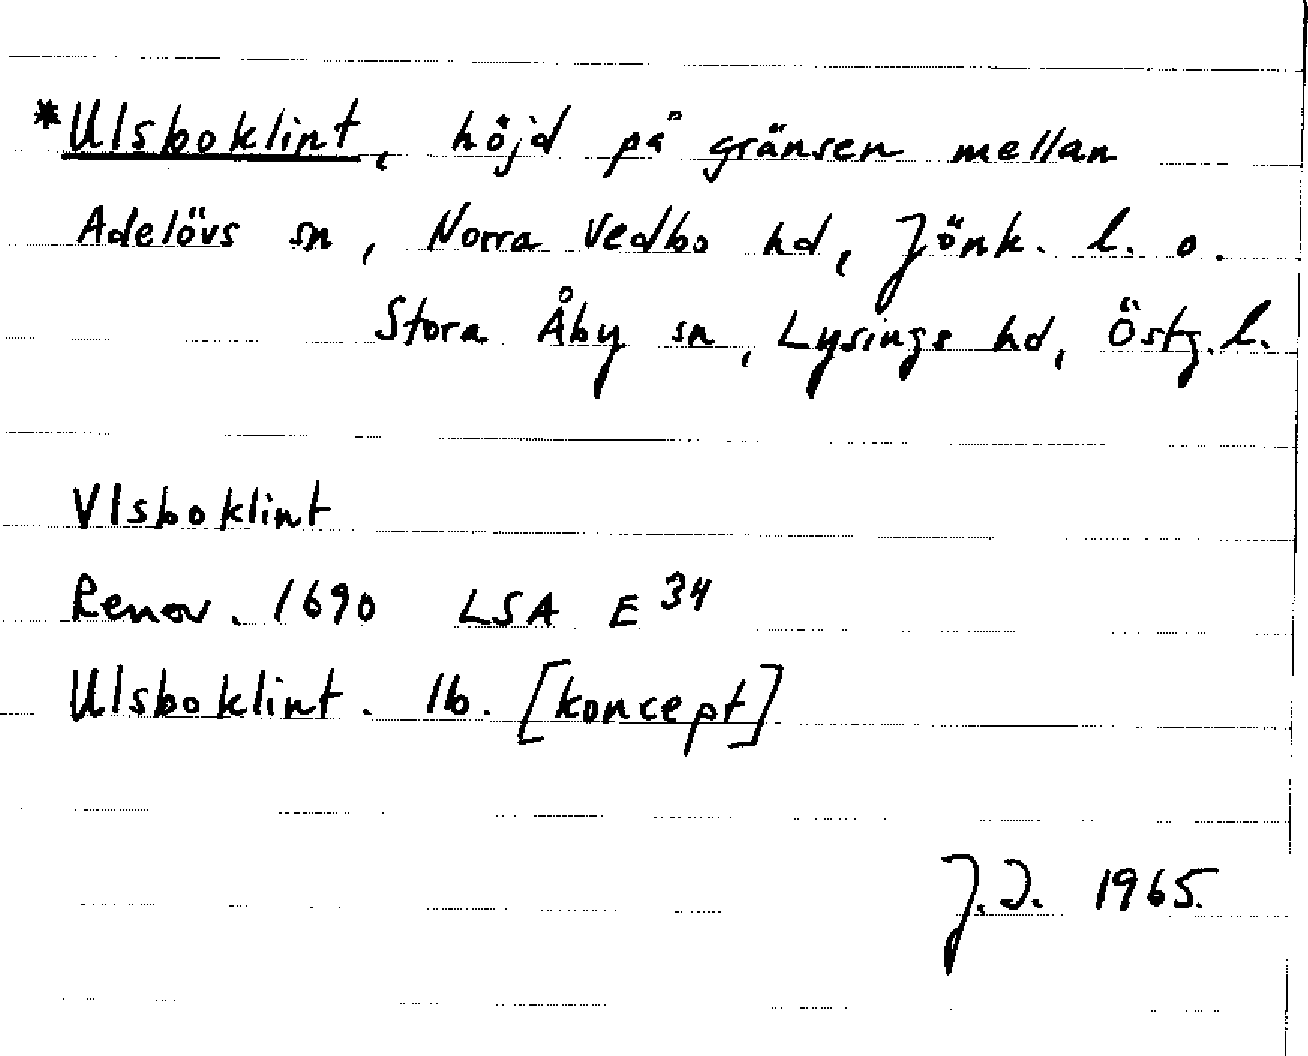 *Ulsboklint, höjd på gränsen mellan
Adelövs sn, Norra Vedbo hd, Jönk. l. o.
Stora Åby sn, Lysings hd, Östg. l.
Vlsboklint
Renov. 1690 LSA E 34
Ulsboklint. Ib. [koncept]
J.J. 1965.